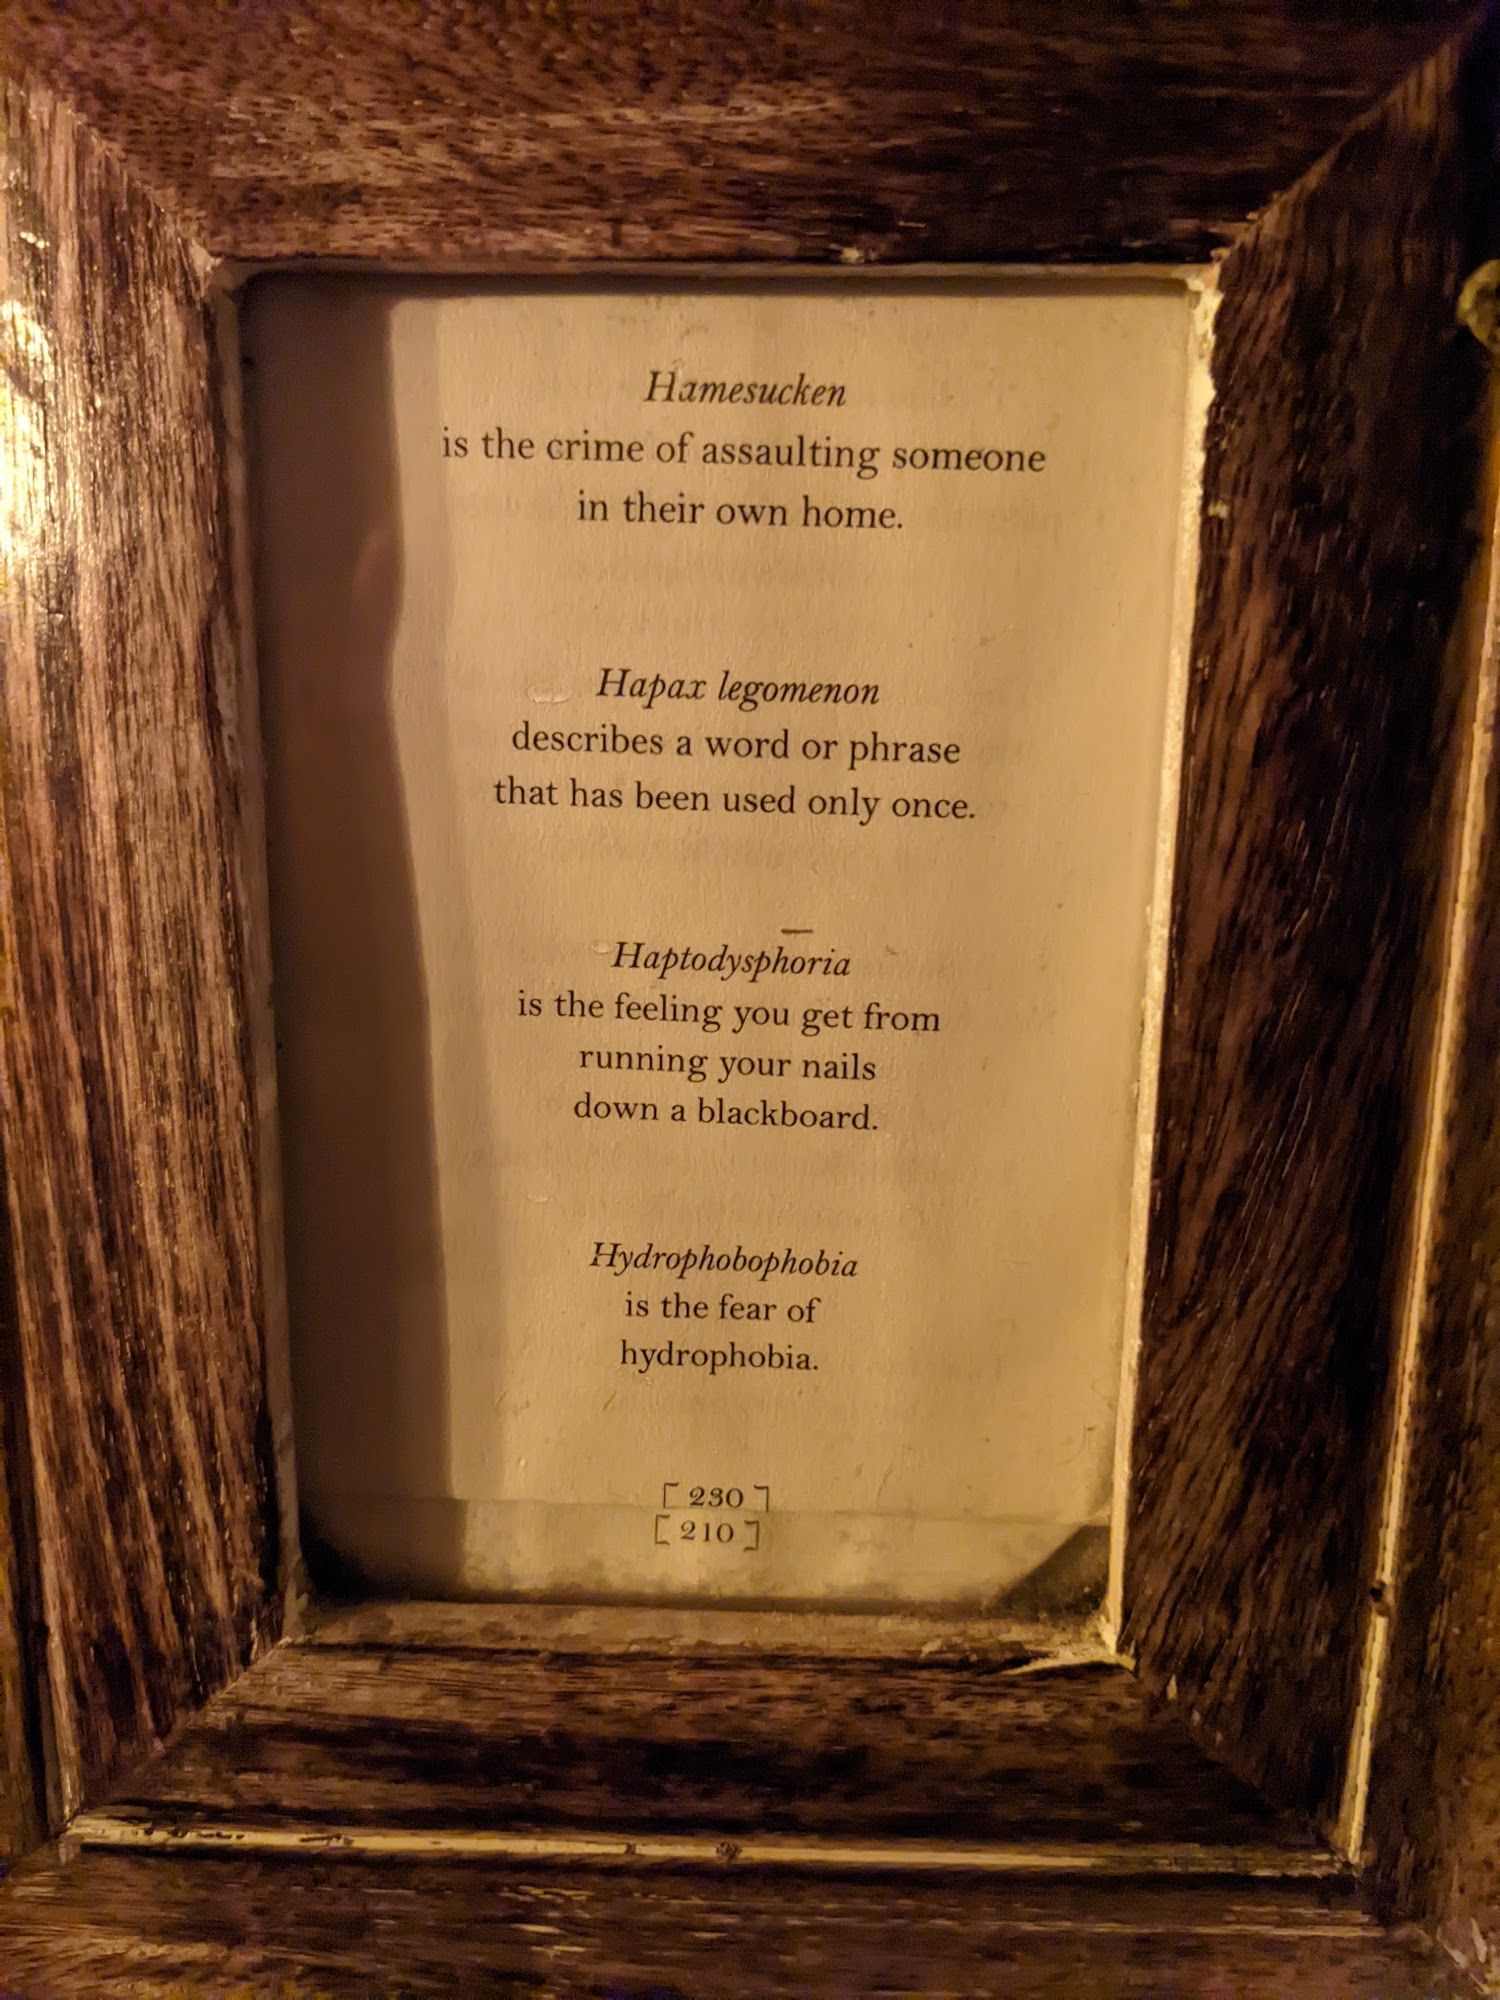 Hamesucken
is the crime of assaulting someone
in their own home.
Hapax legomenon
describes a word or phrase
that has been used only once.
Haptodysphoria
is the feeling you get from
running your nails
down a blackboard.
Hydrophobophobia
is the fear of
hydrophobia.
[ 230 ]
[ 210 ]